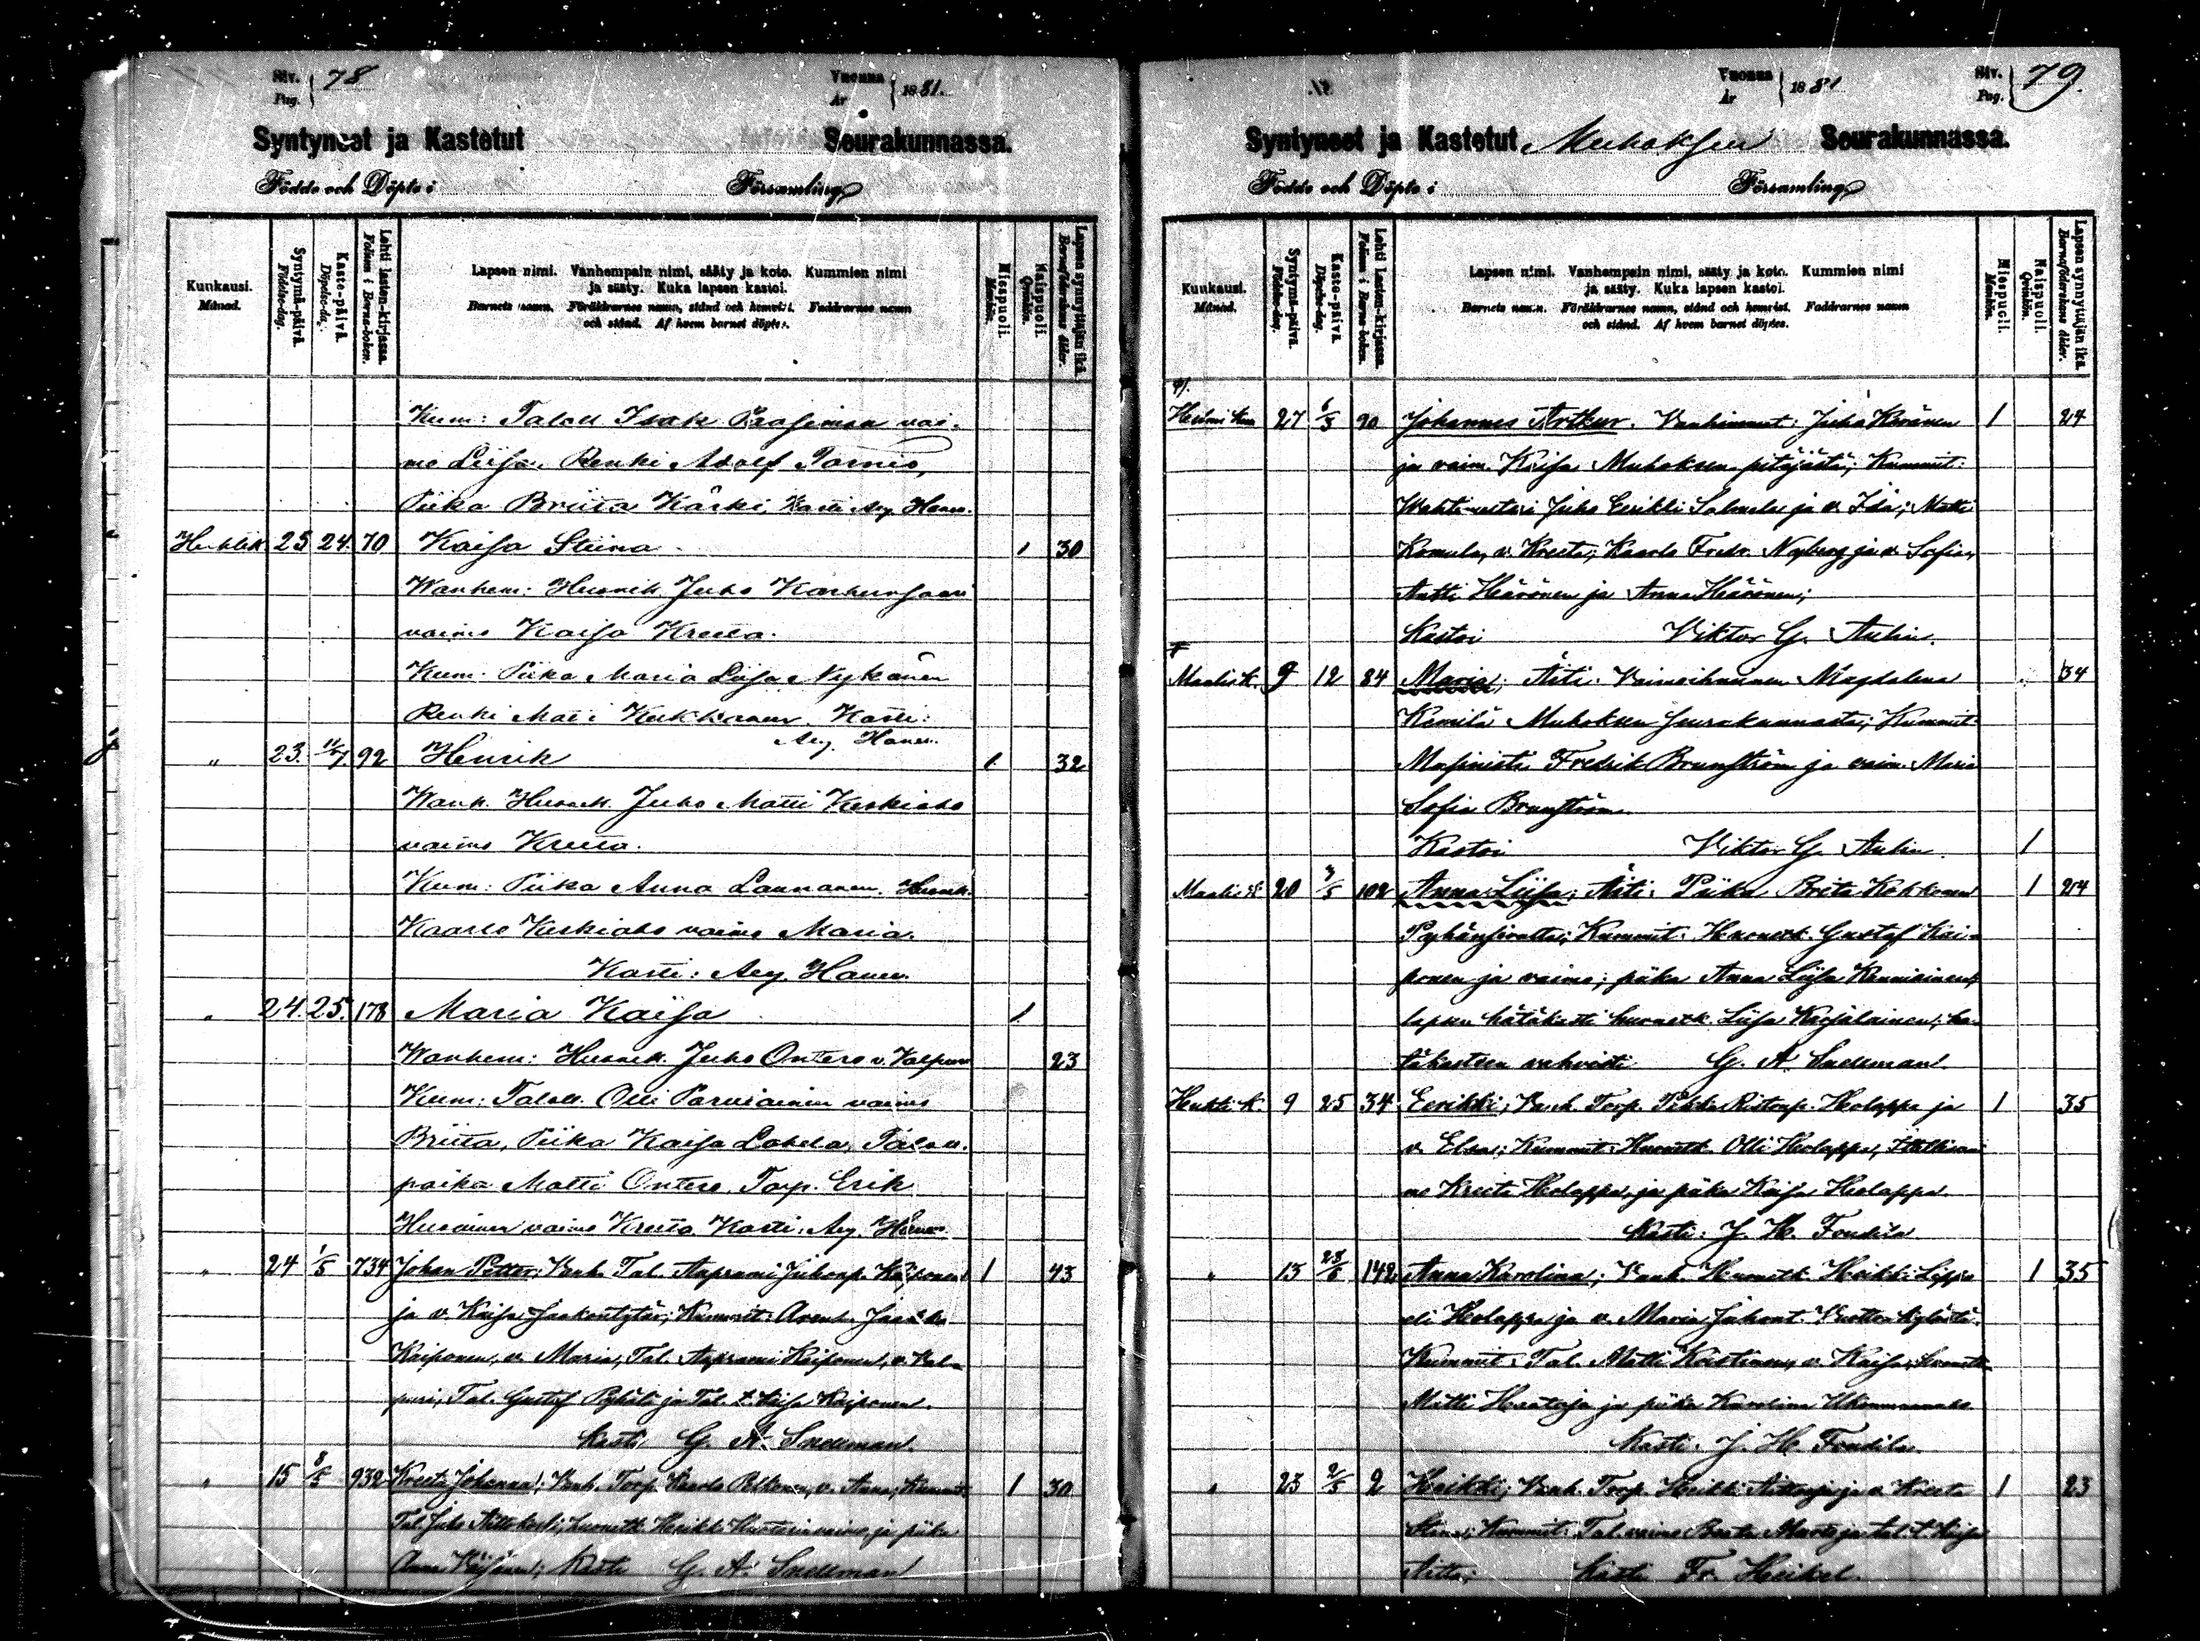 Siv. 78
Pag.
Vuonna 1881.
År
Syntyneet ja Kastetut Seurakunnassa.
Födde och Döpte i Församling
Kunkausi.
Månad.
Syntymä-päivä.
Födelse-dag.
Kaste-päivä.
Döpelse-dag.
Lehti lasten-kirjassa.
Folium i Barna-boken.
Lapsen nimi. Vanhempain nimi, sääty ja koto. Kummien nimi
ja sääty. Kuka lapsen kastoi.
Barnets namn. Föräldrarnes namn, stånd och hemvist. Faddrarnes namn
och stånd. Af hvem barnet döptes.
Miespuoli.
Mankön.
Naispuoli.
Qvinkön.
Lapsen synnyttäjän ikä.
Barnaföderskans ålder.
Kum: Talall Isak vai-
mo Liisa. Renki Adolf Tornio,
Piika Briita Kärki, Kasti Aey Haner.
Huhtik 25 24. 70 Kaisa Stiina 1 30
Wanhem: Huonek. Juho Karhunsaari
vaimo Kaisa Kreeta.
Kum: Piika Maria Liisa Nykänen
Renki Matti Kukkonen. Kasti:
Aey. Haner.
" 23. 11/7. 92 Henrik 1 32
Wanh. Huonek. Juho Matti Keskiaho
vaimo Kreeta.
Kum: Piika Anna Launanen. Huonek.
Kaarlo Keskiaho vaimo Maria.
Kasti: Aey. Haner.
" 24. 25. 178 Maria Kaisa 1
Wanhem: Huonek. Juho Ontero v. Valpuri 23
Kum: Talall. Olli Parviainen vaimo
Briita, Piika Kaisa Lohela, Talall.
poika Matti Ontero. Torp. Erik
Husainen vaimo Kreeta. Kasti: Aey. Haner.
" 24 1/5 734 Johan Petter; Vanh. Tal. Aaprami Juhonp. Kaiponen 1 43
ja v. Kaisa Jaakontytär; Kummit: Jaakko
Kaiponen, v. Maria, Tal. Aaprami Kaiponen, v. Val-
puri, Tal. Gustaf ja Tal. t. Kaisa Kaiponen.
Kasti G. A. Snellman.
" 15 8/5 932 Kreeta Johanna; Vanh. Torp. Kaarlo Pelkonen, v. Anna; Kummit: 1 30
Tal. Juho Aittokoski, huonetk. Heikki vaimo ja piika
Anna; Kasti G. A. Snellman
Vuonna 1881
År
Siv. 79.
Pag.
Syntyneet ja Kastetut Muhoksen Seurakunnassa.
Födde och Döpte i Församling
Kunkausi.
Månad.
Syntymä-päivä.
Födelse-dag.
Kaste-päivä.
Döpelse-dag.
Lehti lasten-kirjassa.
Folium i Barna-boken.
Lapsen nimi. Vanhempain nimi, sääty ja koto. Kummien nimi
ja sääty. Kuka lapsen kastoi.
Barnets namn. Föräldrarnes namn, stånd och hemvist. Faddrarnes namn
och stånd. Af hvem barnet döptes.
Miespuoli.
Mankön.
Naispuoli.
Qvinkön.
Lapsen synnyttäjän ikä.
Barnaföderskans ålder.
Helmi kuu 27 6/3 90 Johannes Artkur. Vanhimmat: Juho Keränen 1 24
ja vaim. Kaisa Muhoksen pitäjästä; Kummit:
Wahtimestari Juho Eerikki Salmela ja v. Ida; Matti
Komula, v. Kreeta; Kaarlo Fredr. Nyberg ja v. Sofia,
Antti Häröinen ja Anna Häröinen;
Kastoi Viktor G. Aulin.
Maalis k. 9 12 84 Maria; Äiti: Vaimoihminen Magdalena 34
Kemilä Muhoksen seurakunnasta; Kummit:
Masinisti Fredrik Brunström ja vaim. Maria
Sofia Brunström.
Kastoi Viktor G. Aulin. 1
Maalis k. 20 3/5 102 Anna Liisa; Äiti: Piika Brita Kokkonen 1 24
Pyhänsivulta; Kummit: Huonetk. Gustaf Kai-
ponen ja vaimo; piika Anna Liisa;
lapsen hätäkasti huonetk. Liisa Karjalainen; hä-
täkasteen vahvisti G. A. Snellman.
Huhti k. 9 25 34 Eerikki; Vanh. Torp. Pekka Ristonp. Holappa ja 1 35
v. Elsa; Kummit: Huonetk. Olli Holappa,
mo Kreeta Holappa, ja piika Kaisa Holappa.
Kasti: J. H. Fondila
" 13 28/6 142 Anna Karolina; Vanh. Huonetk. Heikki Lippo 1 35
eli Holappa ja v. Maria Juhont. Kuotton kylästä.
Kummit: Tal. Matti, v. Kaisa, huonetk.
Matti Haataja ja piika Karolina
Kasti: J. H. Fondila.
" 23 2/5 2 Heikki; Vanh. Torp. Heikki ja v. Kreeta 1 23
Stina; Kummit: Tal. vaimo ja tal. t. Kaisa
Kasti Fr. Heikel.